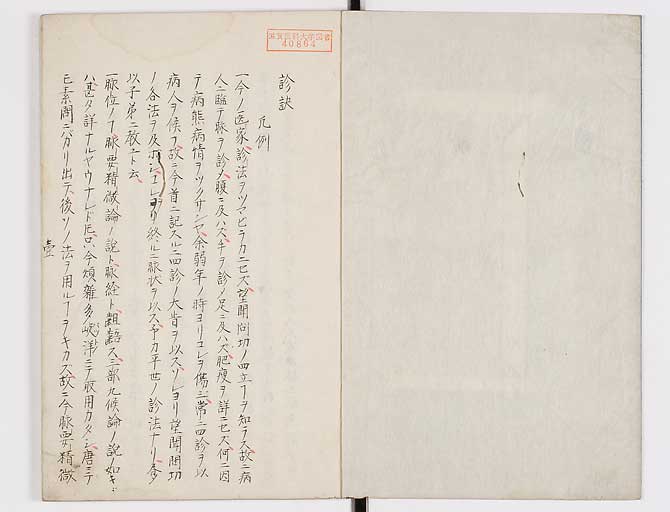 滋賀医科大学図書
40864
診訣
凡例
一今ノ医家診法ヲツマビラカニセズ望聞問切ノ四立ヿヲ知ラズ故ニ病
人ニ臨テ脉ヲ診メ腹ニ及ハズ手ヲ診メ足ニ及ハズ肥痩ヲ詳ニセズ何ニ因
テ病態病情ヲツクサンヤ余弱年ノ時ヨリコレヲ傷ミ常ニ四診ヲ以
病人ヲ候フ故ニ今首ニ記スルニ四診ノ大旨ヲ以スソレヨリ望聞問切
ノ各法ヲ及ホシ終ルニ脉状ヲ以ス予カ平世ノ診法ナリ
以子弟ニ教ユト云
一脉位ノヿ脉要精微論ノ説ト脉経ト齟齬ス三部九候論ノ説ノ如キ
ハ甚タ詳ナルヤウナレド𪜈只今煩雑多岐洋ニテ取用カタシ唐ニテ
モ素問ニバカリ出テ後ソノ法ヲ用ルヿヲキカズ故ニ今脉要精微
壹